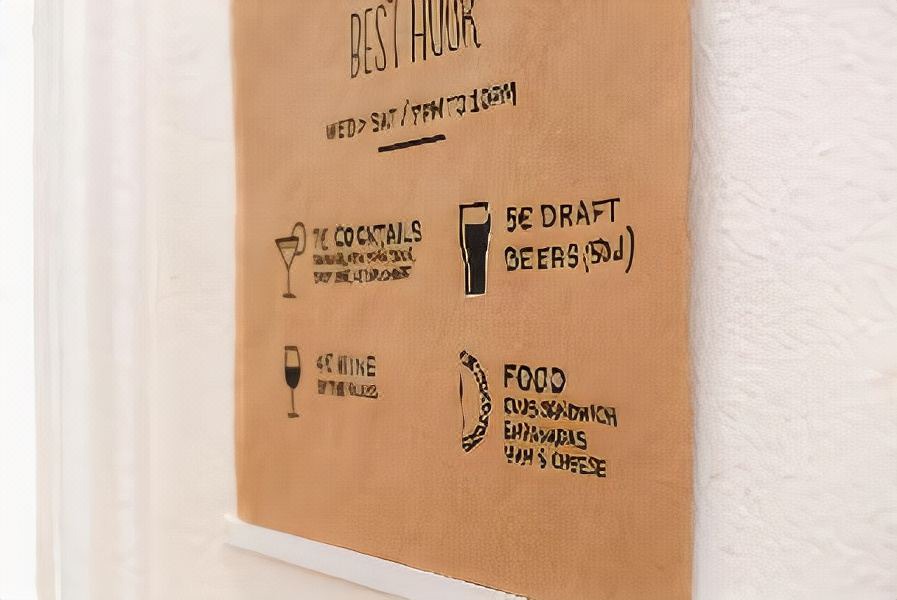 BEST HOUR
WED > SAT / 7PM TO 10PM
7€ COCKTAILS
5€ DRAFT
BEERS (50cl)
4€ WINE
FOOD
CLUB SANDWICH
EMPANADAS
HAM & CHEESE